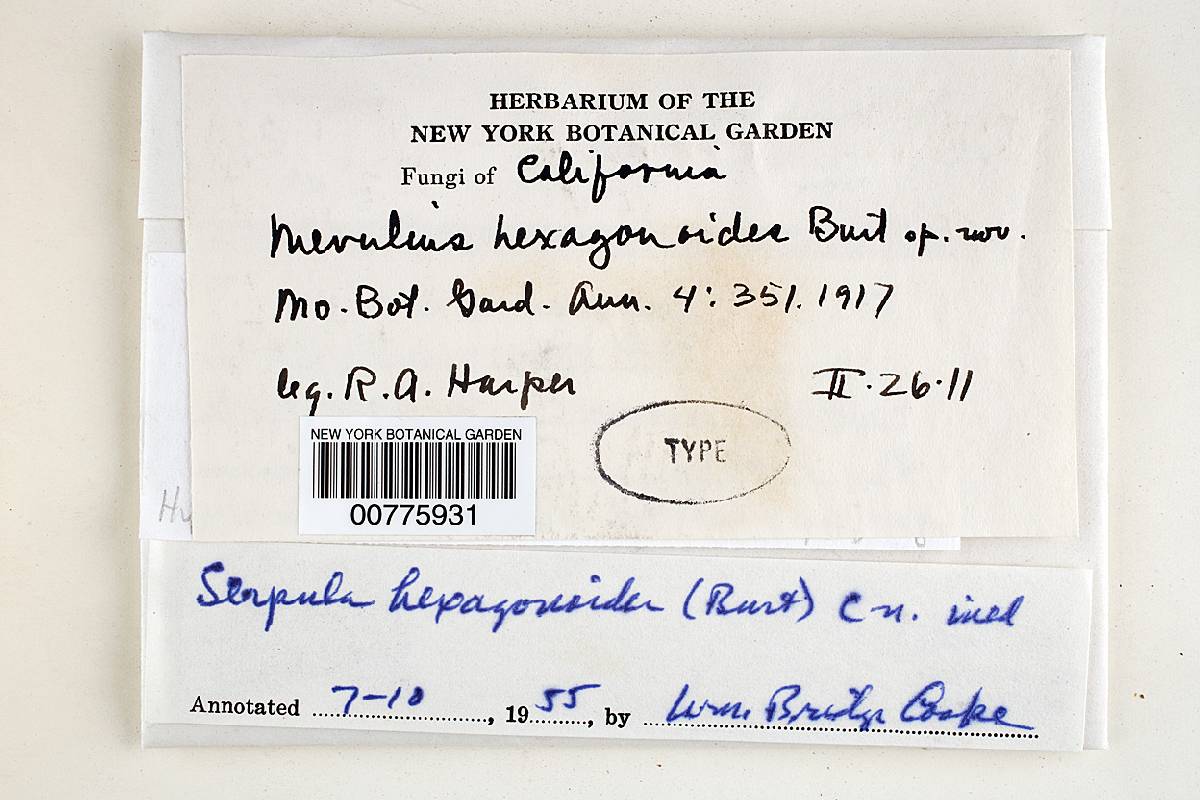 HERBARIUM OF THE
NEW YORK BOTANICAL GARDEN
Fungi of California
Merulius hexagonoides Burt sp. nov.
Mo. Bot. Gard. Ann. 4: 351. 1917
leg. R. A. Harper II. 26. 11
NEW YORK BOTANICAL GARDEN
00775931
TYPE
Serpula hexagonoides (Burt) c n. ined
Annotated 7-10, 1955, by Wm. Bridge Cooke